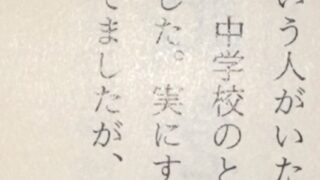 いう人がいた
中学校のと
した。実にす
てましたが、